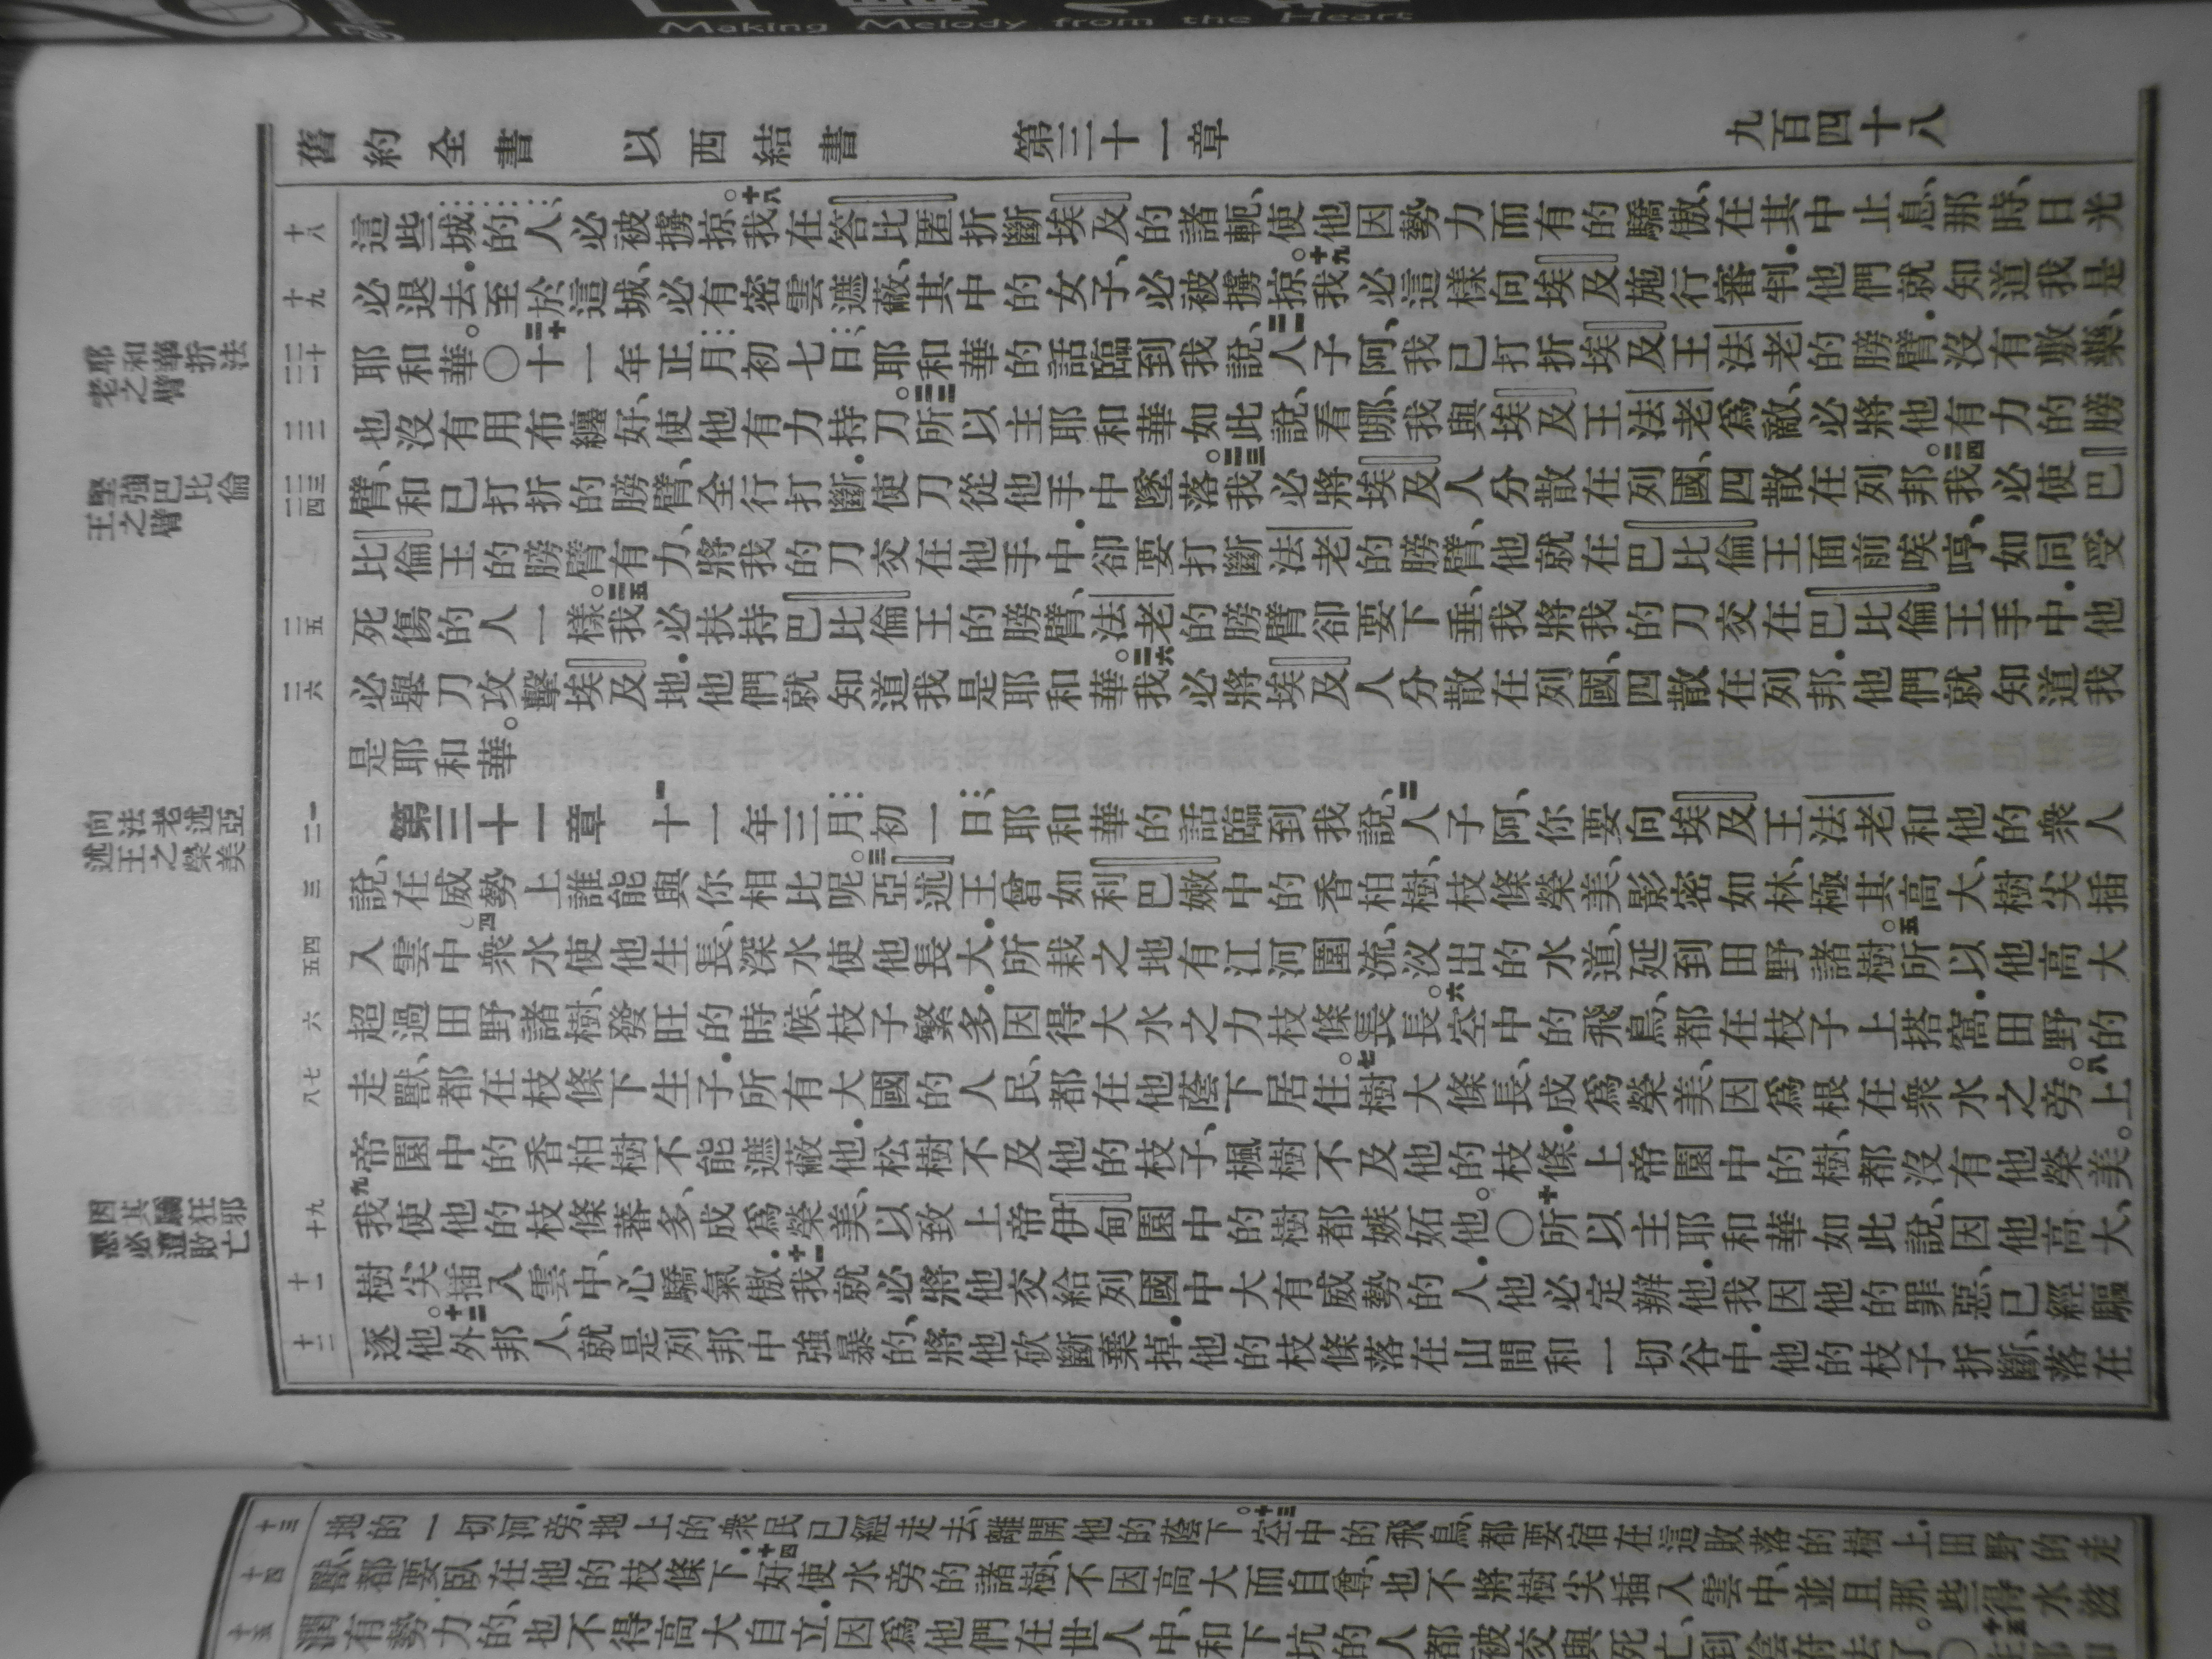 Making Melody from the Heart
舊約全書 以西結書 第三十一章 九百四十八
十八
十九
二十
二五
二六
三
六
十一
十二
耶和華折法
老之臂
堅強巴比倫
王之臂
向法老述亞
述王之榮美
因其驕狂邪
惡必遭敗亡
這些城的人、必被擄掠。十八我在答比匿折斷埃及的諸軛、使他因勢力而有的驕傲、在其中止息、那時、日光
必退去．至於這城、必有密雲遮蔽、其中的女子、必被擄掠。十九我必這樣向埃及施行審判．他們就知道我是
耶和華。〇二十十一年正月初七日、耶和華的話臨到我說、二一人子阿、我已打折埃及王法老的膀臂．沒有敷藥、
也沒有用布纏好、使他有力持刀。二二所以主耶和華如此說、看哪、我與埃及王法老爲敵、必將他有力的膀
臂、和已打折的膀臂、全行打斷．使刀從他手中墜落。二三我必將埃及人分散在列國、四散在列邦。二四我必使巴
比倫王的膀臂有力、將我的刀交在他手中．卻要打斷法老的膀臂、他就在巴比倫王面前唉哼、如同受
死傷的人一樣。二五我必扶持巴比倫王的膀臂、法老的膀臂卻要下垂、我將我的刀交在巴比倫王手中．他
必舉刀攻擊埃及地．他們就知道我是耶和華。二六我必將埃及人分散在列國、四散在列邦．他們就知道我
是耶和華。
第三十一章 一十一年三月初一日、耶和華的話臨到我說、二人子阿、你要向埃及王法老和他的衆人
說、在威勢上誰能與你相比呢。三亞述王曾如利巴嫩中的香柏樹、枝條榮美、影密如林、極其高大、樹尖插
入雲中。四衆水使他生長、深水使他長大．所栽之地有江河圍流、汊出的水道、延到田野諸樹。五所以他高大
超過田野諸樹、發旺的時候、枝子繁多．因得大水之力枝條長長。六空中的飛鳥、都在枝子上搭窩．田野的
走獸、都在枝條下生子．所有大國的人民、都在他蔭下居住。七樹大條長、成爲榮美、因爲根在衆水之旁。八上
帝園中的香柏樹不能遮蔽他．松樹不及他的枝子、楓樹不及他的枝條．上帝園中的樹、都沒有他榮美。
九我使他的枝條蕃多、成爲榮美、以致上帝伊甸園中的樹都嫉妬他。〇十所以主耶和華如此說、因他高大、
樹尖插入雲中、心驕氣傲．十一我就必將他交給列國中大有威勢的人．他必定辦他．我因他的罪惡、已經驅
逐他。十二外邦人、就是列邦中強暴的、將他砍斷棄掉．他的枝條落在山間和一切谷中．他的枝子折斷、落在
十三
十四
十五
地的一切河旁．地上的衆民已經走去、離開他的蔭下。十三空中的飛鳥、都要宿在這敗落的樹上．田野的走
獸、都要臥在他的枝條下．十四好使水旁的諸樹、不因高大而自尊、也不將樹尖插入雲中、並且那些得水滋
潤有勢力的、也不得高大自立．因爲他們在世人中、和下坑的人都被交與死亡、到陰府去了。